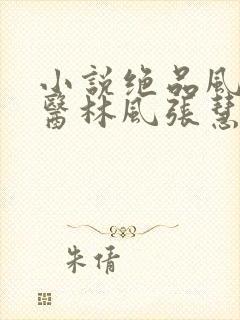 小説绝品風
醫林風張慧
朱倩